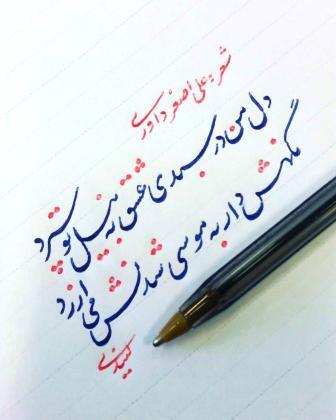 شعر: علی اصغر داوری
دل من در سبدی عشق به نیل تو سپرد
نگهش دار به موسی شدنش می ارزد